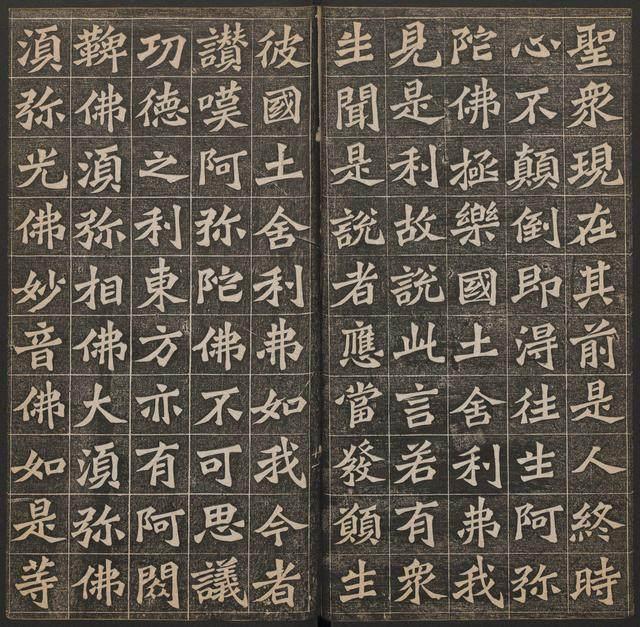 聖衆現在其前是人終時
心不顛倒即淂往生阿弥
陀佛極樂國土舍利弗我
見是利故說此言若有衆
生聞是說者應當發願生
彼國土舍利弗如我今者
讃嘆阿弥陀佛不可思議
功德之利東方亦有阿閦
鞞佛湏弥相佛大湏弥佛
湏弥光佛妙音佛如是等